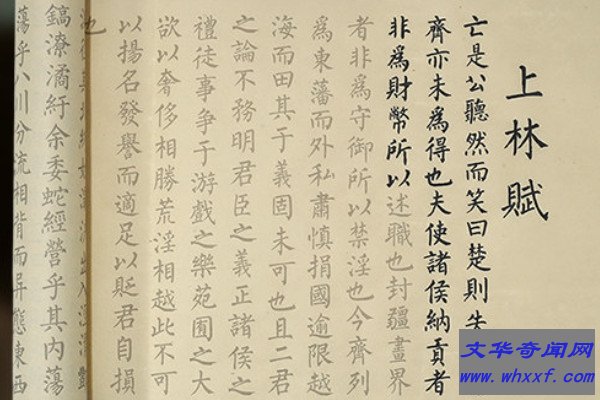 上林賦
亡是公聽然而笑曰楚則失
齊亦未爲得也夫使諸侯納貢者
非爲財幣所以述職也封疆畫界
者非爲守御所以禁淫也今齊列
爲東藩而外私肅慎捐國逾限越
海而田其于義固未可也且二君
之論不務明君臣之義正諸侯之
禮徒事爭于游戲之樂苑囿之大
欲以奢侈相勝荒淫相越此不可
以揚名發譽而適足以貶君自損
也
出入
鎬潦潏紆余委蛇經營乎其内蕩
蕩乎八川分流相背而异態東西
文华奇闻网
www.whxxf.com